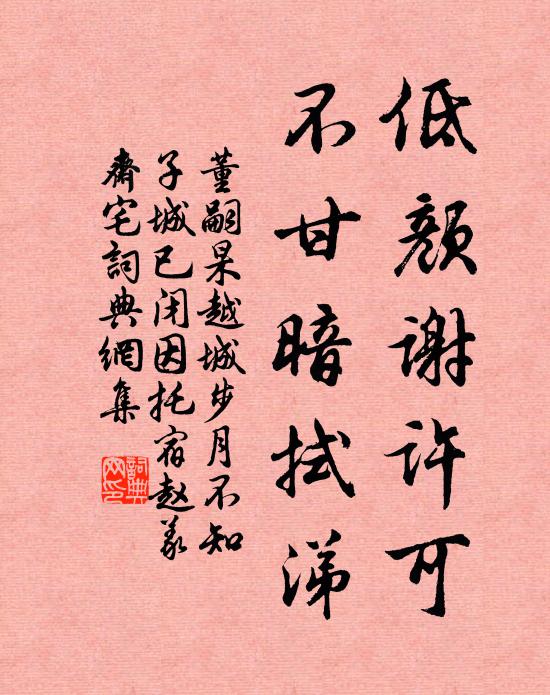 低颜谢许可
不甘暗拭涕
董嗣杲越城步月不知
子城已闭因托宿赵义
斋宅詞典網集
詞典
网印